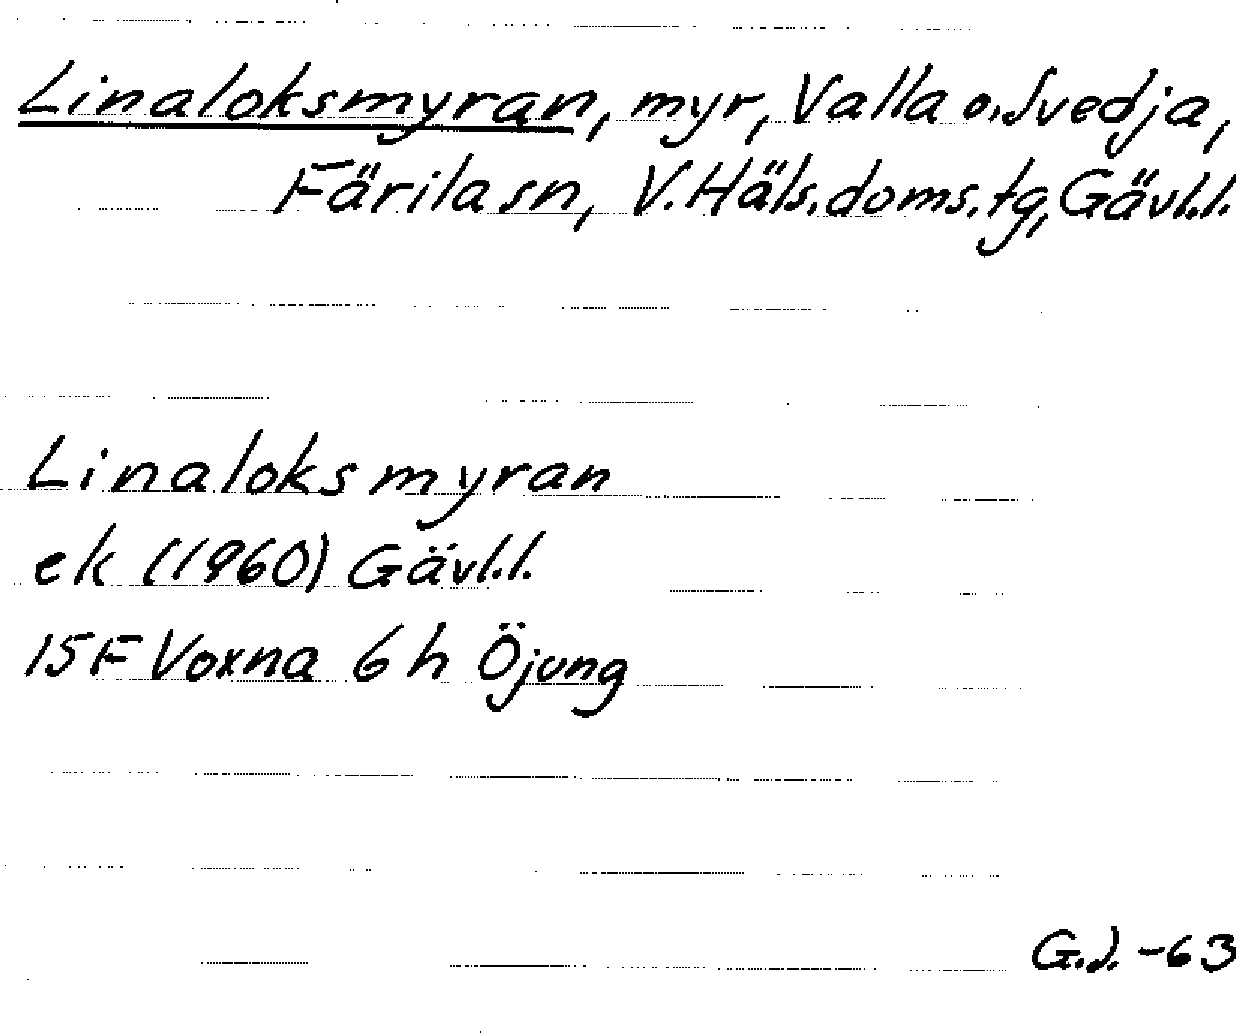 Linaloksmyran, myr, Valla o. Svedja,
Färila sn, V. Häls. doms. tg, Gävl.l.
Linaloksmyran
ek (1960) Gävl.l.
15F Voxna 6h Öjung
G.J. -63